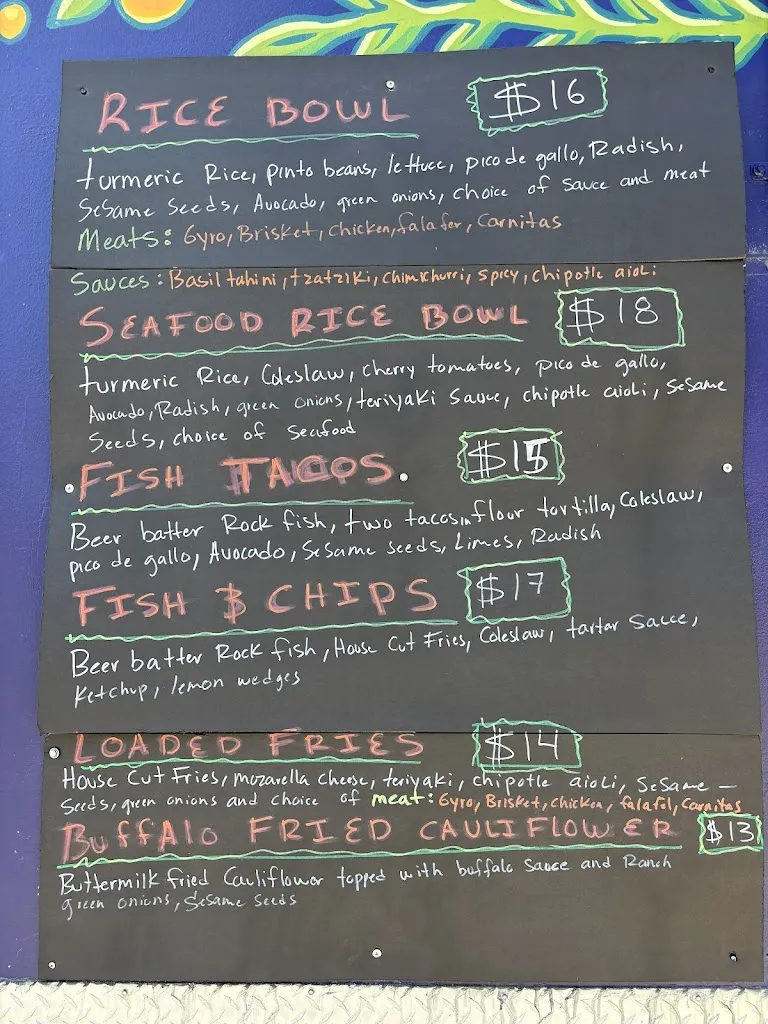 RICE BOWL $16
turmeric Rice, pinto beans, lettuce, pico de gallo, Radish,
Sesame Seeds, Avocado, green onions, choice of sauce and meat
Meats: Gyro, Brisket, chicken, falafer, Carnitas
Sauces: Basil tahini, tzatziki, chimichurri, spicy, chipotle aioli
SEAFOOD RICE BOWL $18
turmeric Rice, Coleslaw, cherry tomatoes, pico de gallo,
Avocado, Radish, green onions, teriyaki sauce, chipotle aioli, Sesame
Seeds, choice of seafood
FISH TACOS $15
Beer batter Rock fish, two tacos in flour tortilla, Coleslaw,
pico de gallo, Avocado, Sesame seeds, Limes, Radish
FISH & CHIPS $17
Beer batter Rock fish, House Cut Fries, Coleslaw, tartar sauce,
Ketchup, lemon wedges
LOADED FRIES $14
House Cut Fries, mozarella cheese, teriyaki, chipotle aioli, Sesame –
Seeds, green onions and choice of meat: Gyro, Brisket, chicken, falafil, Carnitas
BUFFALO FRIED CAULIFLOWER $13
Buttermilk fried Cauliflower topped with buffalo sauce and Ranch
green onions, Sesame seeds